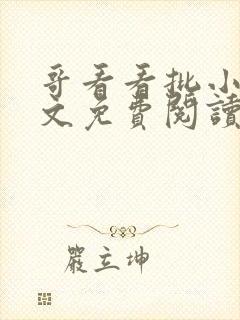 哥看看批小
文免費閱讀
嚴立坤